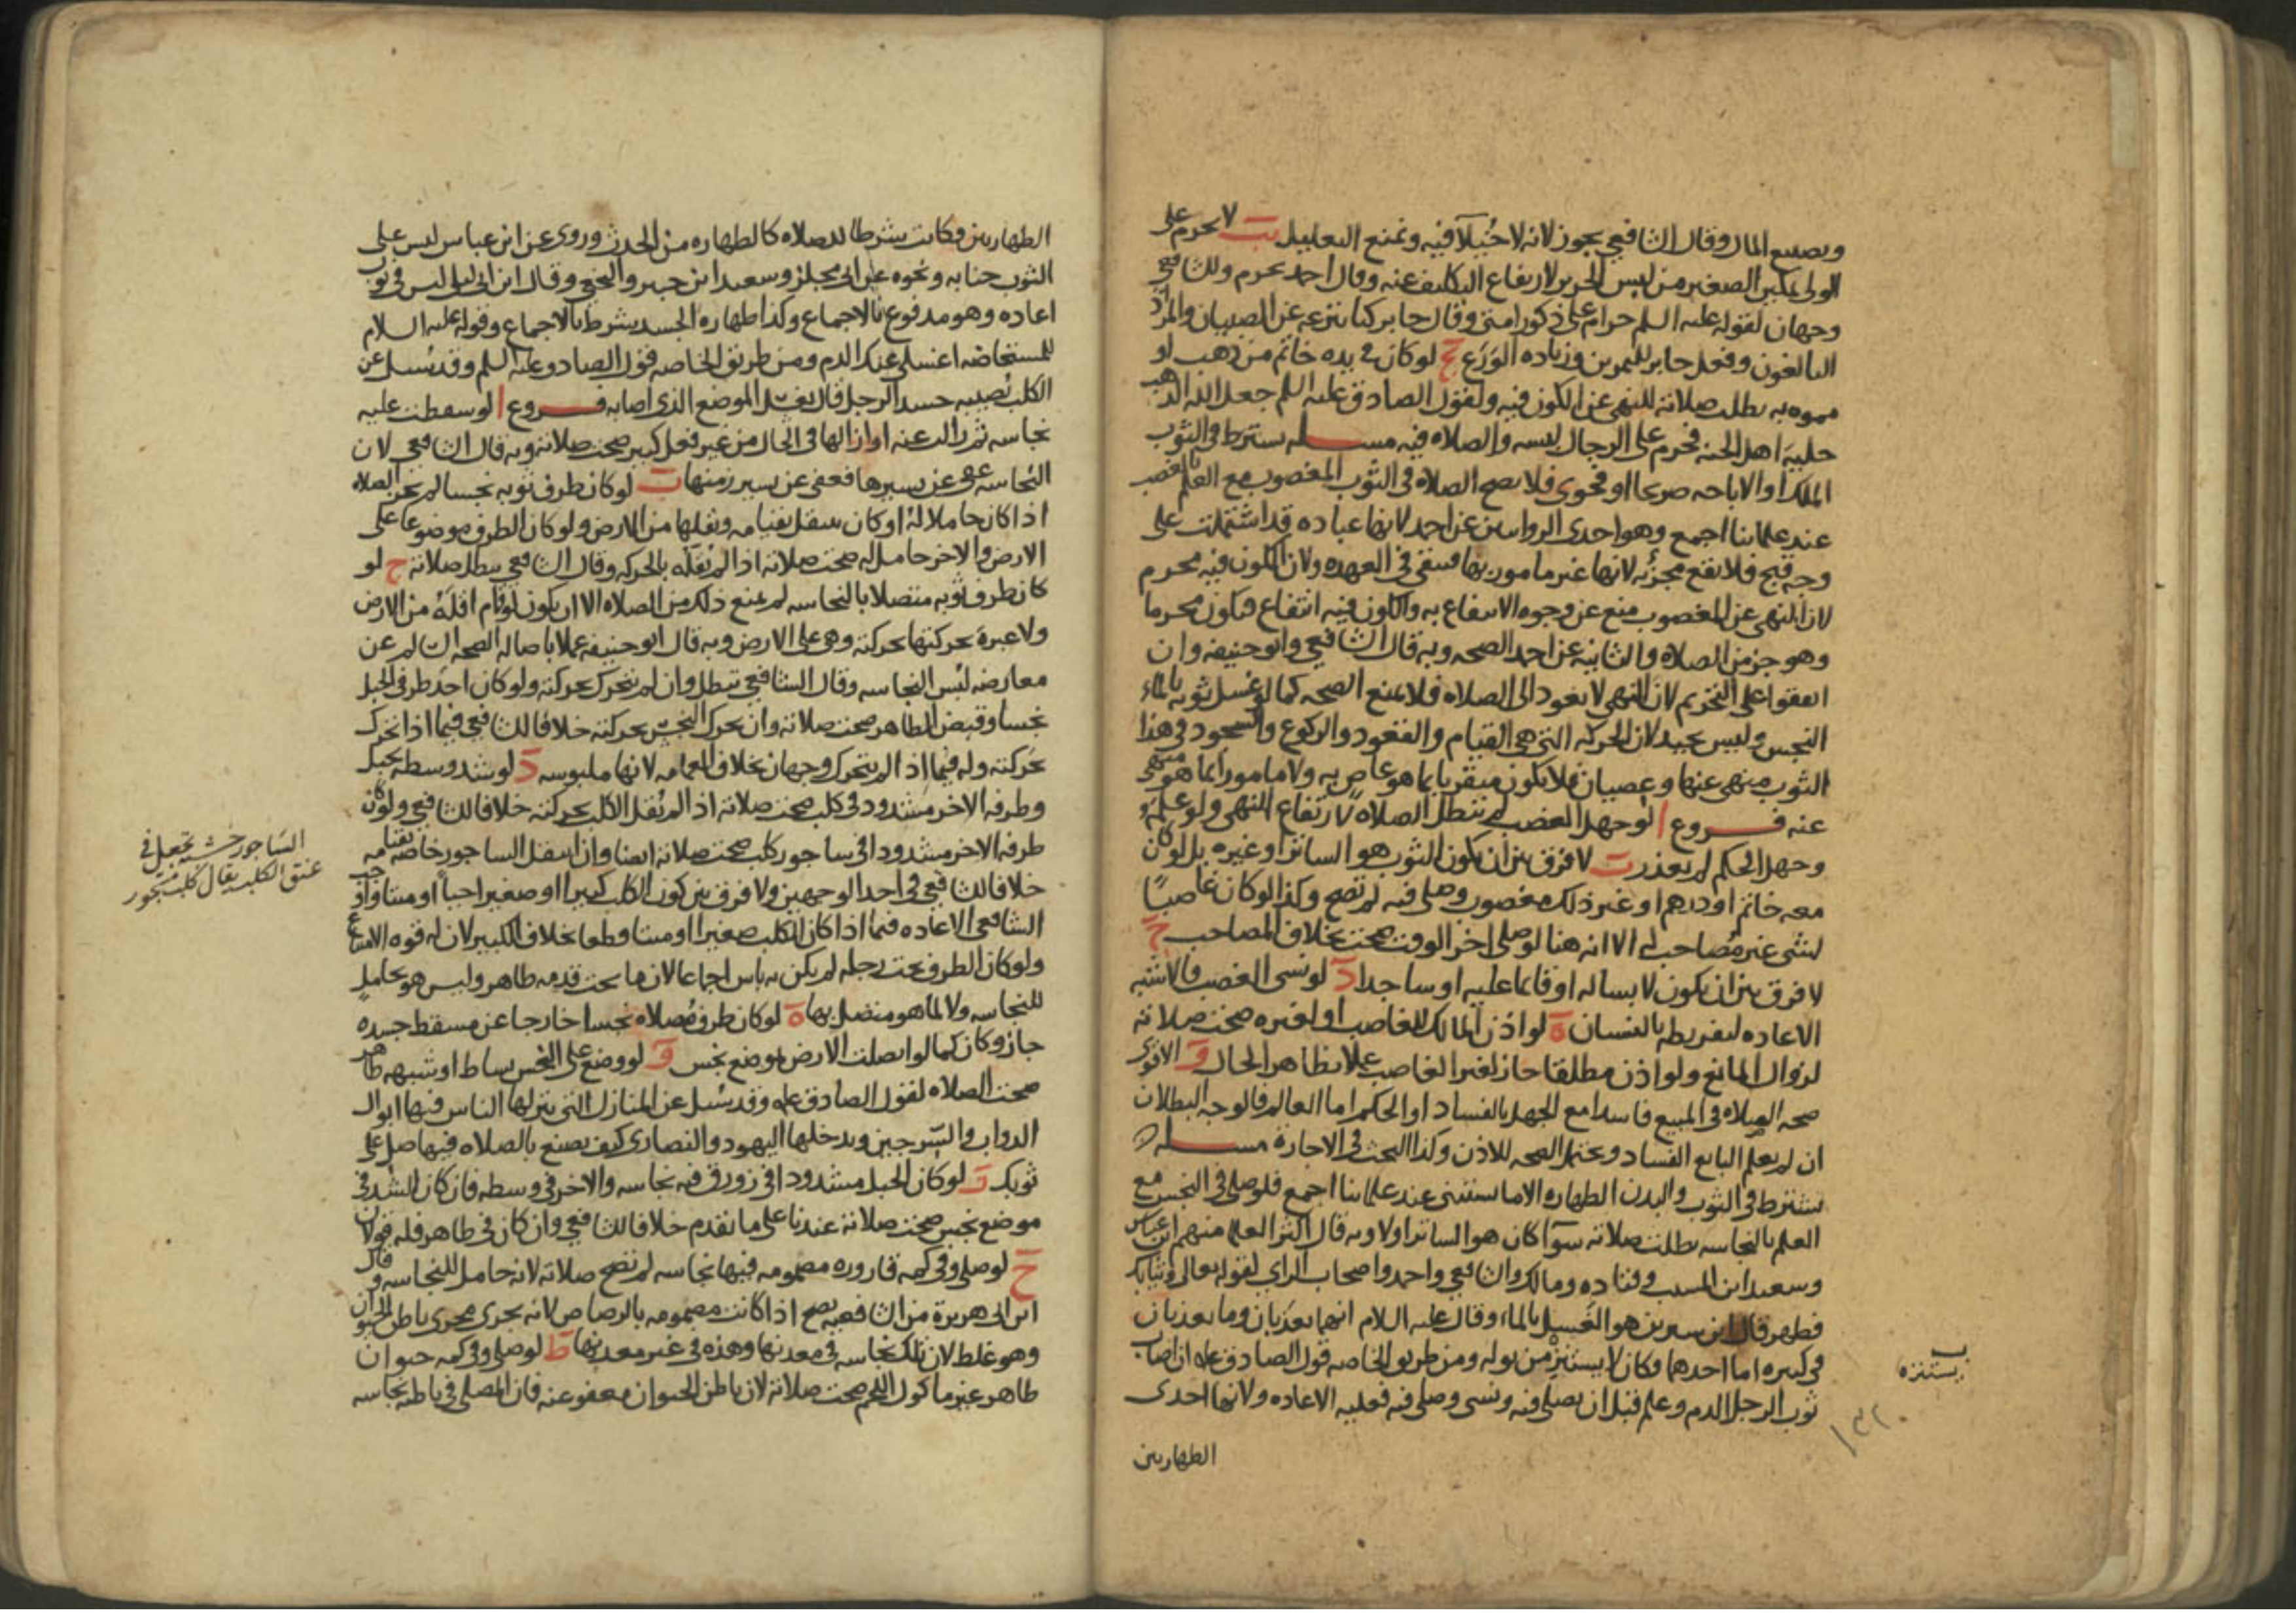 وتضييع المال وقال الشافعي يجوز لانه لا خيلآ فيه ونمنع التعليل يب لا يحرم على
الولي تمكين الصغير من لبس الحرير لارتفاع التكليف عنه وقال احمد يحرم وللشافعي
وجهان لقوله عليه السلم حرام على ذكور امتي وقال جابر كنا ننزعه عن الصبيان والمراد
البالغون وفعل جابر للتمرين وزياده الورع يج لو كان في يده خاتم من ذهب او
مموه به بطلت صلاته للنهي عن الكون فيه ولقول الصادق عليه السلم جعل الله الذهب
حليه اهل الجنه فحرم على الرجال لبسه والصلاه فيه مسله يشترط في الثوب
الملك او الاباحه صريحا او فحوى فلا يصح الصلاه في الثوب المغصوب مع العلم بالغصب
عند علمائنا اجمع وهو احدى الروايتين عن احمد لانها عباده قد اشتملت على
وجه قبح فلا يقع مجزئه لانها غير مامور بها فتبقى في العهده ولان الكون فيه محرم
لان النهي عن المغصوب منع عن وجوه الانتفاع به والكون فيه انتفاع فيكون محرما
وهو جز من الصلاه والثانيه عن احمد الصحه وبه قال الشافعي وابو حنيفه وان
اتفقوا على التحريم لان النهي لا يعود الى الصلاه فلا يمنع الصحه كما لو غسل ثوبه بالماء
النجس وليس بجيد لان الحركه التي هي القيام والقعود والركوع والسجود في هذا
الثوب منهى عنها وعصيان فلا يكون متقربا بما هو عاص به ولا مامورا بما هو منهى
عنه فروع ا لو جهل الغصب لم تبطل الصلاه لارتفاع النهي ولو علمه
وجهل الحكم لم يعذر ب لا فرق بين ان يكون الثوب هو الساتر او غيره بل لو كان
معه خاتم او درهم او غير ذلك مغصوب وصلى فيه لم تصح وكذا لو كان غاصبًا
لشى غير مُصاحب له الا انه هنا لو صلى اخر الوقت صحت بخلاف المصاحب ج
لا فرق بين ان يكون لابسا له او قائما عليه او ساجدا د لو نسي الغصب فالاشبه
الاعاده لتفريطه بالنسيان ه لو اذن المالك للغاصب او لغيره صحت صلاته
لزوال المانع ولو اذن مطلقا جاز لغير الغاصب عملا بظاهر الحال و الاقوى
صحه الصلاه في المبيع فاسدا مع الجهل بالفساد او الحكم اما العالم فالوجه البطلان
ان لم يعلم البايع الفساد ويحتمل الصحه للاذن وكذا البحث في الاجارة مسله
يشترط في الثوب والبدن الطهاره الا ما يستثنى عند علمائنا اجمع فلو صلى في النجس مع
العلم بالنجاسه بطلت صلاته سوآ كان هو الساتر او لا وبه قال اكثر العلما منهم ابن عباس
وسعيد ابن المسيب وقتاده ومالك والشافعي واحمد واصحاب الراي لقوله تعالى وثيابك
فطهر قال ابن سيرين هو الغسيل بالماء وقال عليه السلام انهما يعذبان وما يعذبان
في كبيره اما احدهما فكان لا يستنزه من بوله ومن طريق الخاصه قول الصادق علم ان اصاب
ثوب الرجل الدم وعلم قبل ان يصلى فيه ونسى وصلى فيه فعليه الاعاده ولانها احدى
الطهارتين
يستنزه
الطهارتين فكانت شرطا للصلاه كالطهاره من الحدث وروى عن ابن عباس ليس على
الثوب جنابه ونحوه عن ابي مجلز وسعيد ابن جبير والنخعي وقال ابن ابي ليلى ليس في ثوب
اعاده وهو مدفوع بالاجماع وكذا طهاره الجسد شرط بالاجماع وقوله عليه السلام
للمستحاضه اغسلي عنك الدم ومن طريق الخاصه قول الصادق عليه السلم وقد سُيل عن
الكلب يُصيب جسد الرجل قال يغسل الموضع الذي اصابه فروع ا لو سقطت عليه
نجاسه ثم زالت عنه او ازالها في الحال من غير فعل كبير صحت صلاته وبه قال الشافعي لان
النجاسه عفي عن يسيرها فعفي عن يسير زمنها ب لو كان طرف ثوبه نجسا لم يجز الصلاه
اذا كان حاملا لهُ او كان ينتقل بقيامه ويقلها من الارض ولو كان الطرف موضوعا على
الارض والاخر حامل له صحت صلاته اذا لم يُقلّه بالحركه وقال الشافعي يبطل صلاته ج لو
كان طرف ثوبه متصلا بالنجاسه لم يمنع ذلك من الصلاه الا ان يكون لو قام اقلّهُ من الارض
ولا عبرة بحركتها بحركته وهي على الارض وبه قال ابو حنيفه عملا باصاله الصحه السالم عن
معارضه لبس النجاسه وقال الشافعي تبطل وان لم يتحرك بحركته ولو كان احد طرفي الحبل
نجسا وقبض الطاهر صحت صلاته وان تحرك النجس بحركته خلافا للشافعي فيما اذا تحرك
بحركته وله فيما اذا لم يتحرك وجهان بخلاف العمامه لانها ملبوسه د لو شد وسطه بحبل
وطرفه الاخر مشدود في كلب صحت صلاته اذا لم يُقل الكلب بحركته خلافا للشافعي ولو كان
طرفه الاخر مشدودا في ساجور كلب صحت صلاته ايضا وان انتقل الساجور خاصه بقيامه
خلافا للشافعي في احد الوجهين ولا فرق بين كون الكلب كبيرا او صغيرا حيا او ميتا واوجب
الشافعي الاعاده فيما اذا كان الكلب صغيرا او ميتا قطعا بخلاف الكبير لان له قوه الامتناع
ولو كان الطرف تحت رجله لم يكن به باس اجماعا لان ما تحت قدمه طاهر وليس هو بحاملٍ
للنجاسه ولا لما هو متصل بها ه لو كان طرف مُصلاه نجسا خارجا عن مسقط جسده
جاز وكان كما لو اتصلت الارض بموضع نجس و لو وضع على النجس بساط او شبهه طاهر
صحت الصلاه لقول الصادق علم وقد سُيل عن المنازل التي ينزلها الناس فيها ابوال
الدواب والسرجين ويدخلها اليهود والنصارى كيف يصنع بالصلاه فيها صل على
ثوبك ز لو كان الحبل مشدودا في زورق فيه نجاسه والاخر في وسطه فان كان الشد في
موضع نجس صحت صلاته عندنا على ما تقدم خلافا للشافعي وان كان في طاهر فله قولان
ح لو صلى وفي كمه قاروره مضمومه فيها نجاسه لم تصح صلاته لانه حامل للنجاسه وقال
ابن ابي هريرة من الشافعيه يصح اذا كانت مضمومه بالرصاص لانه يجرى مجرى باطن الحيوان
وهو غلط لان تلك نجاسه في معدنها وهذه في غير معدنها ط لو صلى وفي كمه حيوان
طاهر غير ماكول اللحم صحت صلاته لان باطن الحيوان معفو عنه فان المصلى في باطنه نجاسه
الساجور خشبه تجعل في
عنق الكلب يقال كلب مسجور